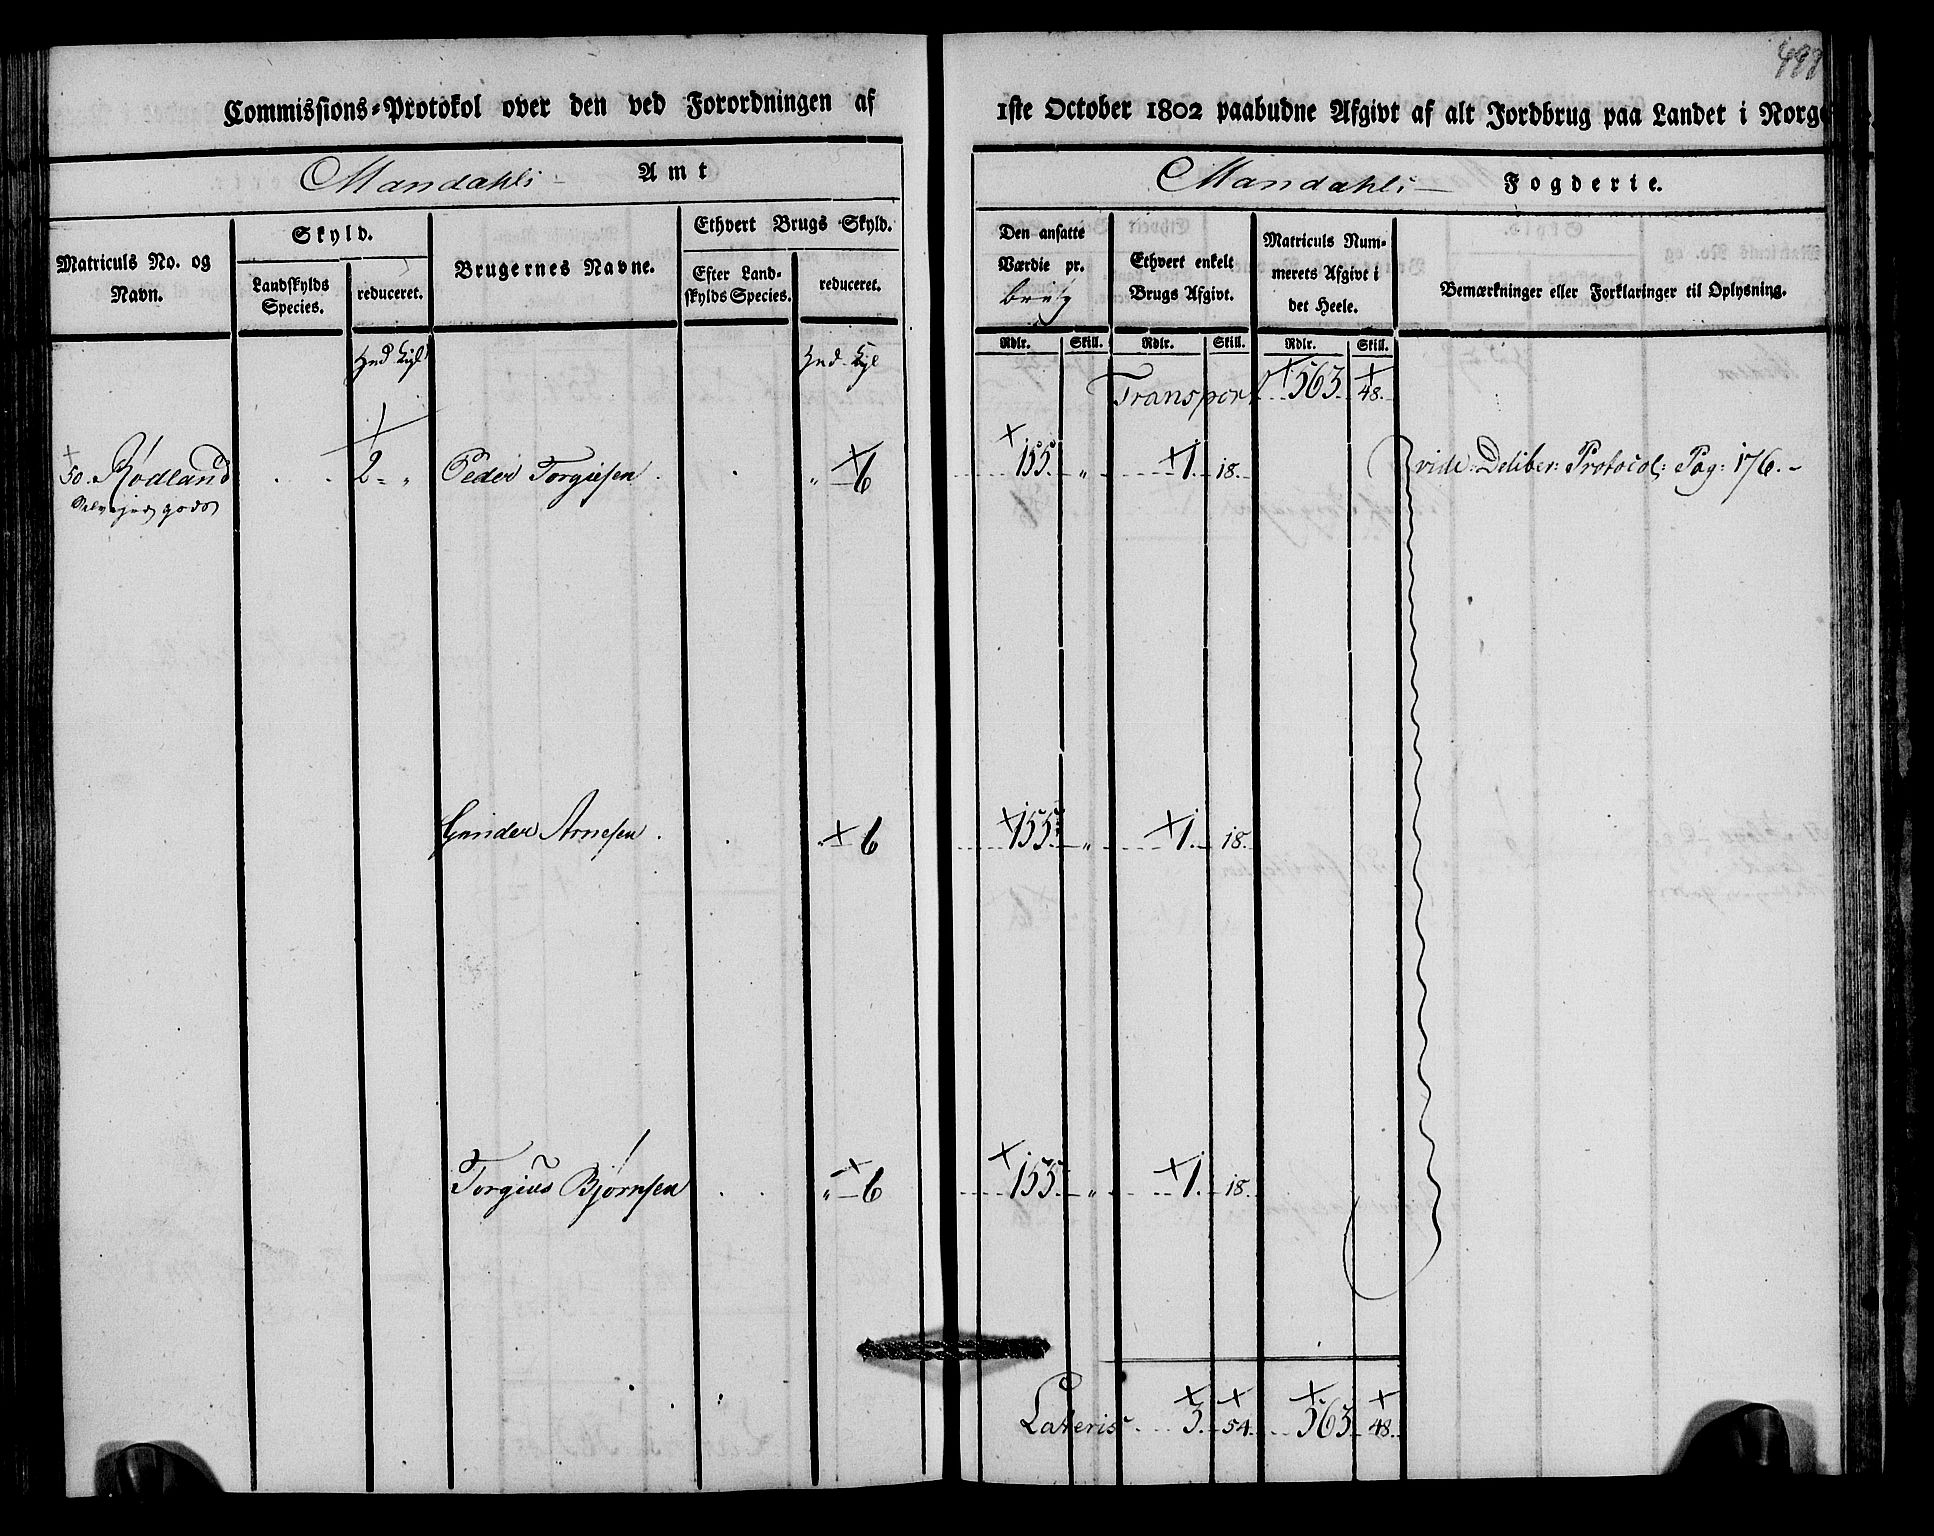 498
Commissions-Protokol over den ved Forordningen af 1ste October 1802 paabudne Afgivt af alt Jordbrug paa Landet i Norge
Mandahls Amt
Mandahls Fogderie.
Matriculs No. og Navn.
Skyld.
Landskylds Species.
reduceret.
Brugernes Navne.
Ethvert Brugs Skyld.
Efter Landskylds Species.
reduceret.
Den ansatte Værdie pr. brug
Ethvert enkelt Brugs Afgivt.
Matriculs Nummerets Afgivt i det Heele.
Bemærkninger eller Forklaringer til Oplysning.
Rdlr. Skill. Rdlr. Skill. Rdlr. Skill.
Transport 563. 48.
50. Rødland 2 " Peder Torgiesen " 6 155 " 1. 18. vide: Deliber: Protocol: Pag: 176.
gods
Gunder Arnesen " 6 155 " 1. 18.
Torgius Bjørnsen " 6 155 " 1. 18.
Lateris 3. 54. 563. 48.